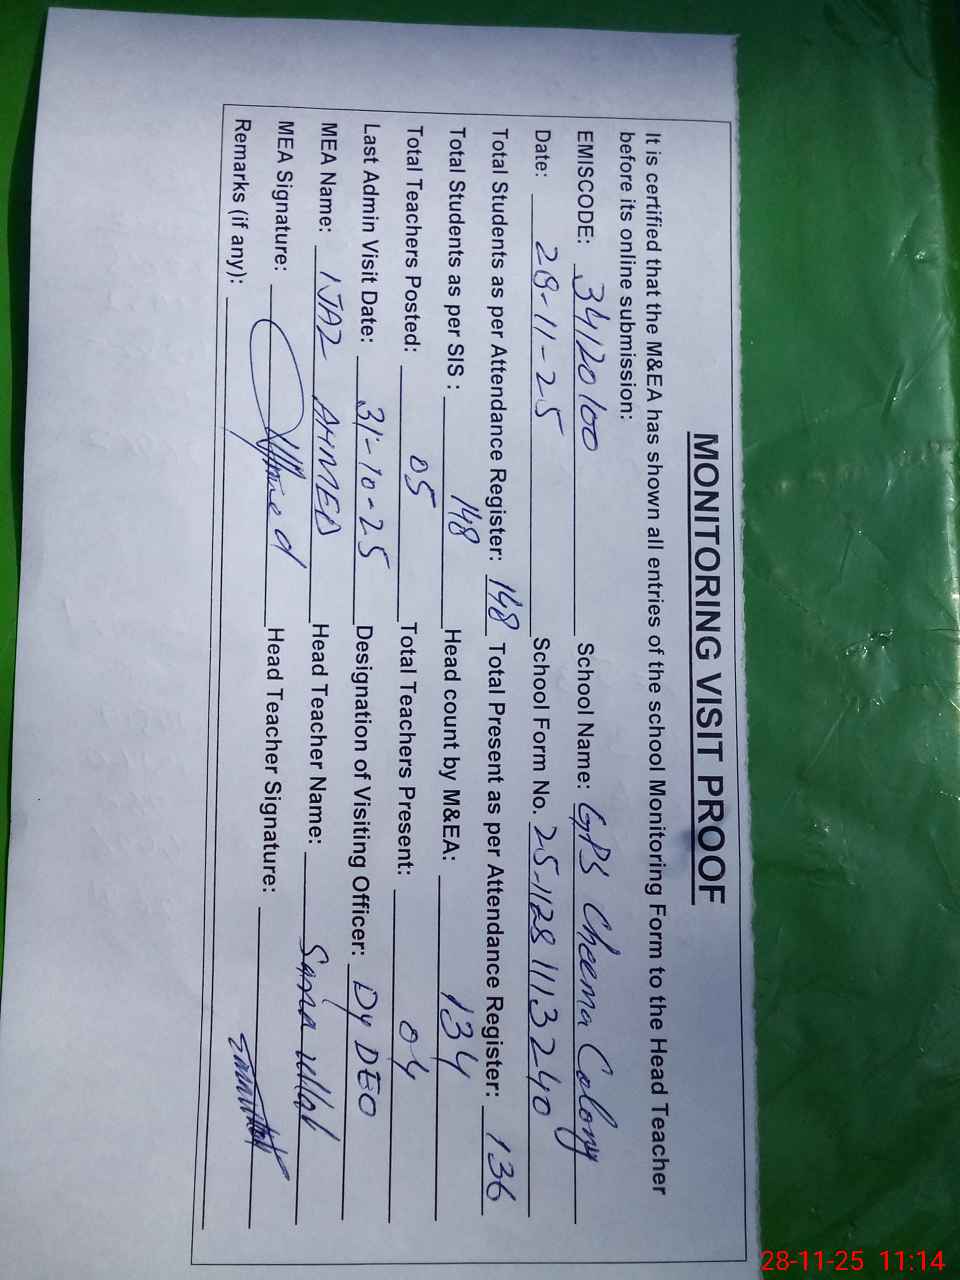 MONITORING VISIT PROOF
It is certified that the M&EA has shown all entries of the school Monitoring Form to the Head Teacher
before its online submission:
EMISCODE: 34120100 School Name: GPS Cheema Colony
Date: 28-11-25 School Form No. 25-1128 1113240
Total Students as per Attendance Register: 148 Total Present as per Attendance Register: 136
Total Students as per SIS : 148 Head count by M&EA: 134
Total Teachers Posted: 05 Total Teachers Present: 04
Last Admin Visit Date: 31-10-25 Designation of Visiting Officer: Dy DEO
MEA Name: IJAZ AHMED Head Teacher Name: Sana Ullah
MEA Signature: Head Teacher Signature:
Remarks (if any):
28-11-25 11:14